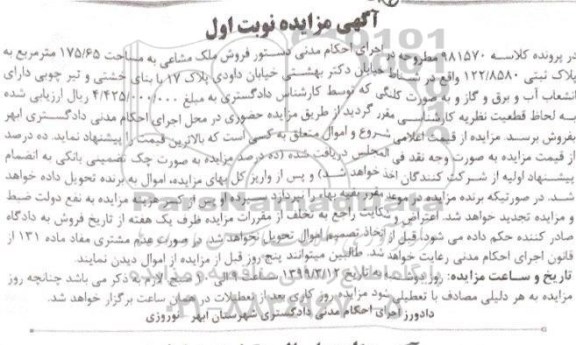 آگهی مزایده نوبت اول
در پرونده کلاسه ۹۸۱۵۷۰ مطروحه در اجرای احکام مدنی دستور فروش ملک مشاعی به مساحت ۱۷۵/۶۵ مترمربع به
پلاک ثبتی ۱۲۲/۸۵۸۰ واقع در شناط خیابان دکتر بهشتی خیابان داودی پلاک ۱۷ با بنای خشتی و تیر چوبی دارای
انشعاب آب و برق و گاز و به صورت کلنگی که توسط کارشناس دادگستری به مبلغ ۴/۴۳۵/۰۰۰/۰۰۰ ریال ارزیابی شده
به لحاظ قطعیت نظریه کارشناسی مقرر گردید از طریق مزایده حضوری در محل اجرای احکام مدنی دادگستری ابهر
بفروش برسد. مزایده از قیمت اعلامی شروع و اموال متعلق به کسی است که بالاترین قیمت را پیشنهاد نماید. ده درصد
از قیمت مزایده به صورت وجه نقد فی المجلس دریافت شده (ده درصد مزایده به صورت چک تضمینی بانکی به انضمام
پیشنهاد اولیه از شرکت کنندگان اخذ خواهد شد) و پس از واریز کل بهای مزایده، اموال به برنده تحویل داده خواهد
شد. در صورتیکه برنده مزایده در موعد مقرر بقیه بهاء را نپردازد سپرده او پس از کسر هزینه مزایده به نفع دولت ضبط
و مزایده تجدید خواهد شد. اعتراض و شکایت راجع به تخلف از مقررات مزایده ظرف یک هفته از تاریخ فروش به دادگاه
صادر کننده حکم داده می شود. قبل از اتخاذ تصمیم اموال تحویل نخواهد شد. در صورت عدم مشتری مفاد ماده ۱۳۱ از
قانون اجرای احکام مدنی رعایت خواهد شد. طالبین میتوانند پنج روز قبل از مزایده از اموال دیدن نمایند.
تاریخ و ساعت مزایده: روز دوشنبه به تاریخ ۱۳۹۹/۳/۱۲ ساعت ۹ الی ۱۰ صبح. لازم به ذکر می باشد چنانچه روز
مزایده به هر دلیلی مصادف با تعطیلی شود مزایده روز کاری بعد از تعطیلات در همان ساعت برگزار خواهد شد.
دادورز اجرای احکام مدنی دادگستری شهرستان ابهر - نوروزی